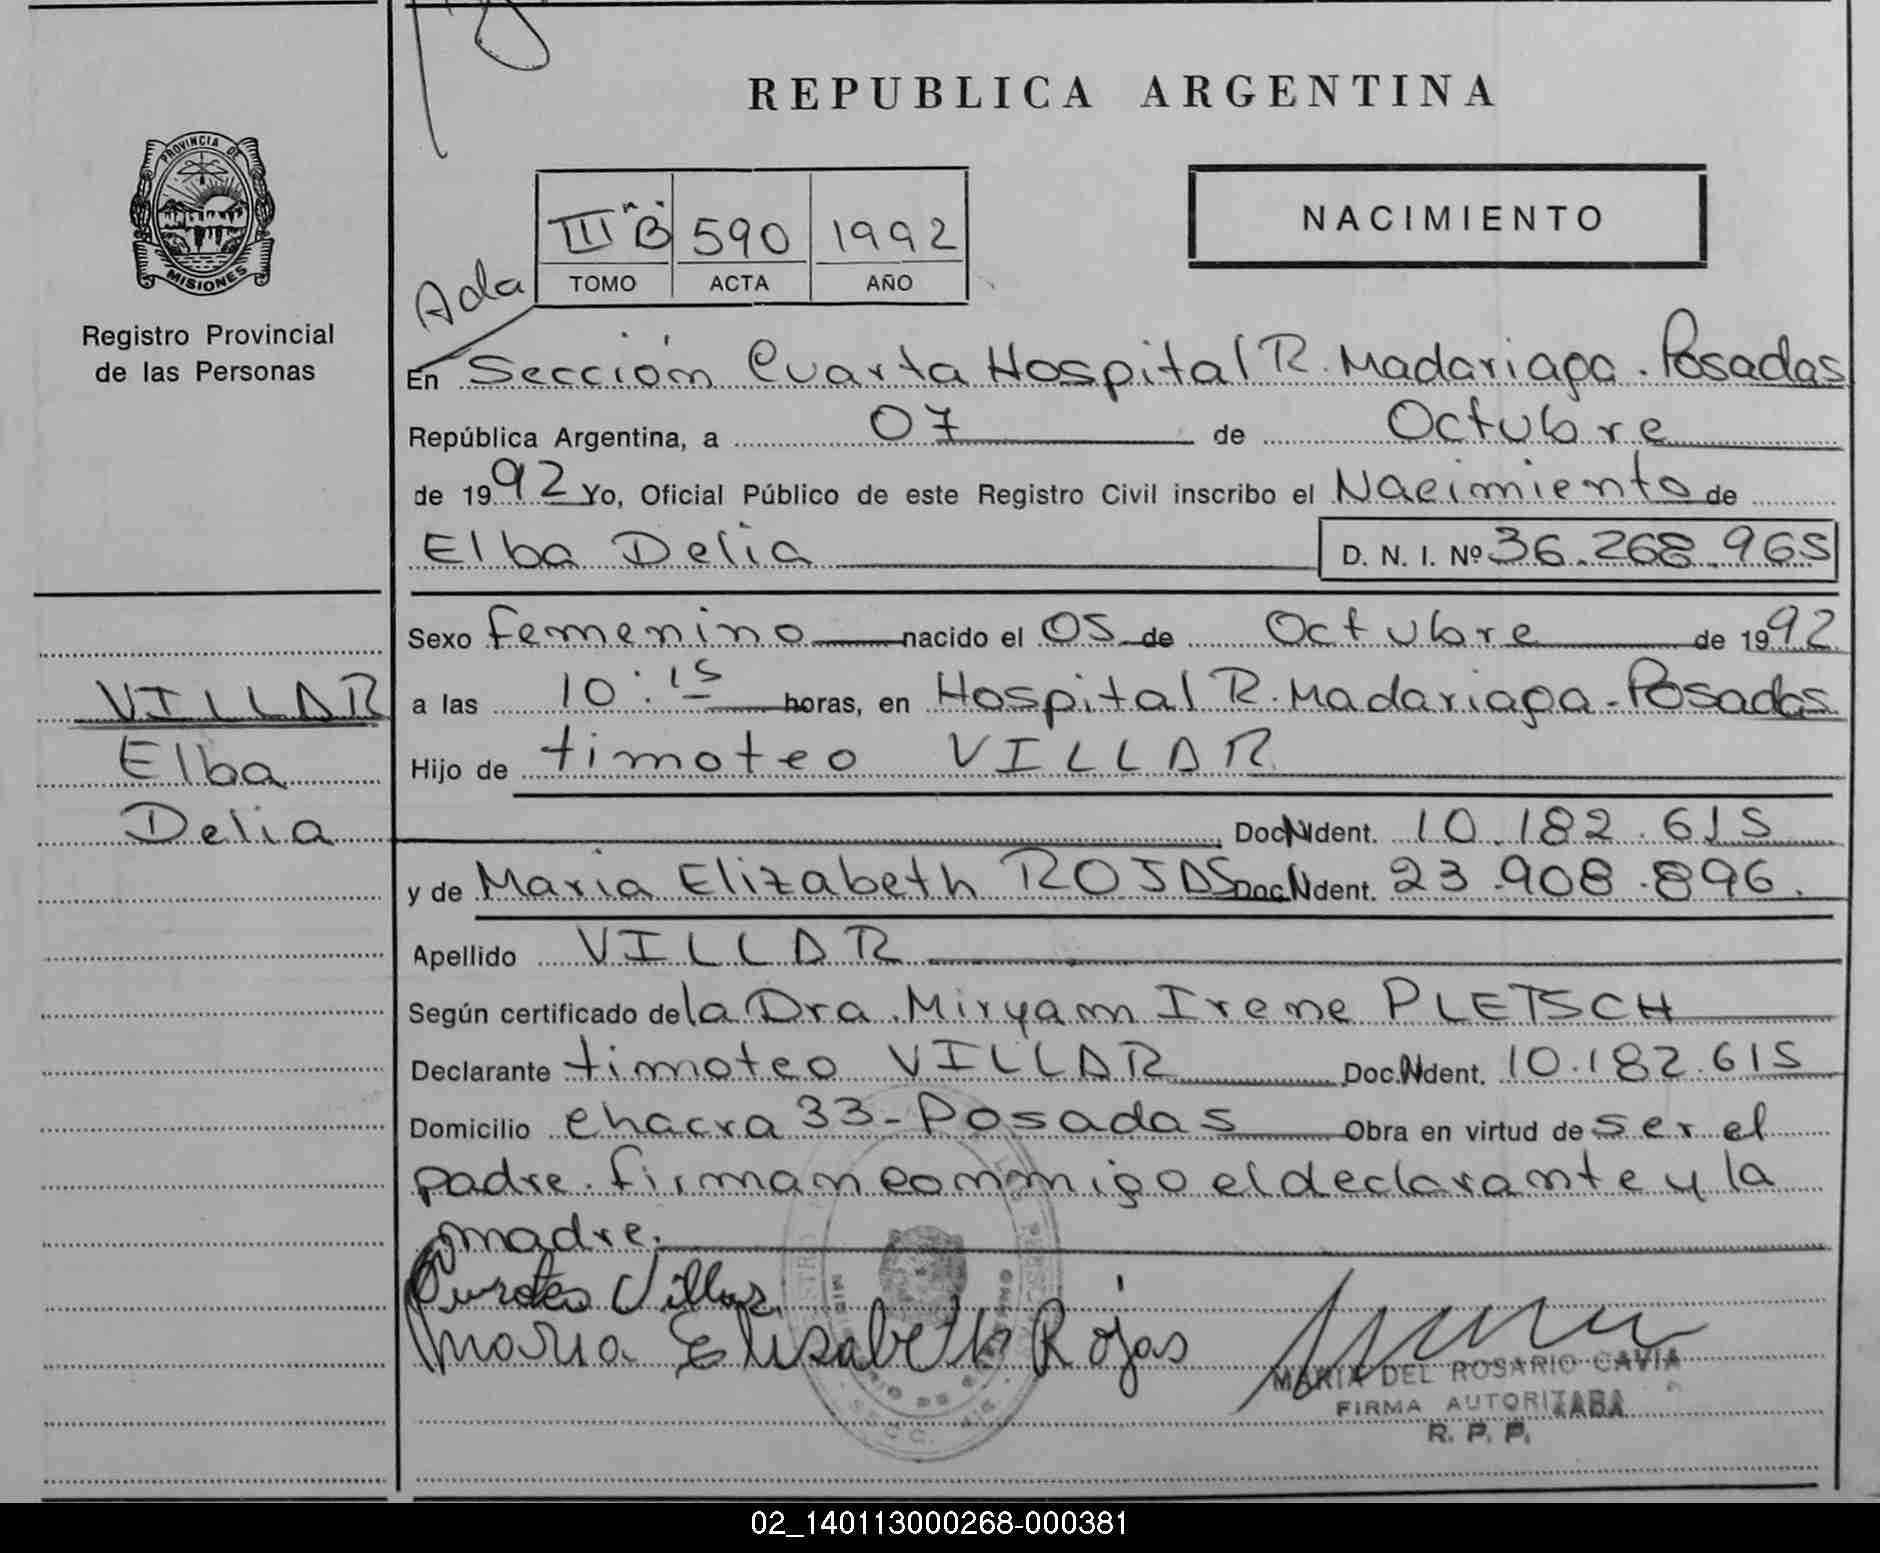 REPUBLICA ARGENTINA
PROVINCIA DE
MISIONES
Registro Provincial
de las Personas
III "B" 590 1992
TOMO ACTA AÑO
NACIMIENTO
Ada
En Sección Cuarta Hospital R. Madariaga. Posadas
República Argentina, a 07 de Octubre
de 1992 Yo, Oficial Público de este Registro Civil inscribo el Nacimiento de
Elba Delia D. N. I. Nº 36.268.965
Sexo femenino nacido el 05 de Octubre de 1992
a las 10:15 horas, en Hospital R. Madariaga - Posadas
Hijo de timoteo VILLAR
Doc. N Ident. 10.182.615
y de Maria Elizabeth ROJAS Doc. N Ident. 23.908.896.
Apellido VILLAR
Según certificado de la Dra. Miryam Irene PLETSCH
Declarante timoteo VILLAR Doc. N Ident. 10.182.615
Domicilio chacra 33 - Posadas Obra en virtud de ser el
padre. firman conmigo el declarante y la
madre.
VILLAR
Elba
Delia
Villar
Maria Elisabeth Rojas
MARIA DEL ROSARIO CAVIA
FIRMA AUTORIZADA
R. P. P.
02_140113000268-000381